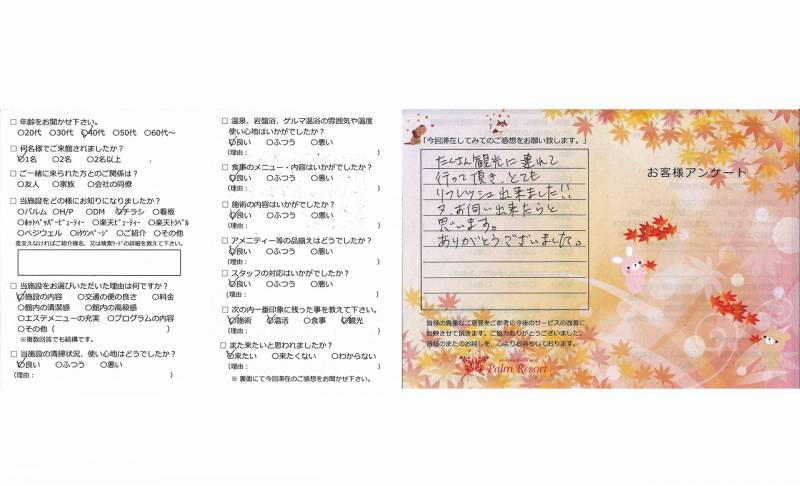 □ 年齢をお聞かせ下さい。
○20代 ○30代 ○40代 ○50代 ○60代～
□ 何名様でご来館されましたか？
○1名 ○2名 ○2名以上
□ ご一緒に来られた方とのご関係は？
○友人 ○家族 ○会社の同僚
□ 当施設をどの様にお知りになりましたか？
○パルム ○H/P ○DM ○チラシ ○看板
○ﾎｯﾄﾍﾟｯﾊﾟｰﾋﾞｭｰﾃｨｰ ○楽天ﾋﾞｭｰﾃｨｰ ○楽天ﾄﾗﾍﾞﾙ
○ベジウェル ○iﾀｳﾝﾍﾟｰｼﾞ ○ご紹介 ○その他
差支えなければご紹介様名、又は検索ﾜｰﾄﾞの詳細を教えて下さい。
□ 当施設をお選びいただいた理由は何ですか？
○施設の内容 ○交通の便の良さ ○料金
○館内の清潔感 ○館内の高級感
○エステメニューの充実 ○プログラムの内容
○その他（ ）
※複数回答でも結構です。
□ 当施設の清掃状況、使い心地はどうでしたか？
○良い ○ふつう ○悪い
(理由： )
□ 温泉、岩盤浴、ゲルマ温浴の雰囲気や温度
使い心地はいかがでしたか？
○良い ○ふつう ○悪い
(理由： )
□ 食事のメニュー・内容はいかがでしたか？
○良い ○ふつう ○悪い
(理由： )
□ 施術の内容はいかがでしたか？
○良い ○ふつう ○悪い
(理由： )
□ アメニティー等の品揃えはどうでしたか？
○良い ○ふつう ○悪い
(理由： )
□ スタッフの対応はいかがでしたか？
○良い ○ふつう ○悪い
(理由： )
□ 次の内一番印象に残った事を教えて下さい。
○施術 ○温活 ○食事 ○観光
(理由： )
□ また来たいと思われましたか？
○来たい ○来たくない ○わからない
(理由： )
※ 裏面にて今回滞在のご感想をお聞かせ下さい。
「今回滞在してみてのご感想をお願い致します。」
たくさん観光に連れて
行って頂き、とても
リフレッシュ出来ました!!
又、お伺い出来たらと
思います。
ありがとうございました。
皆様の貴重なご意見をご参考に今後のサービスの改善に
反映させて頂きます。ご協力ありがとうございました。
皆様のまたのお越しを、心よりお待ちしております。
Palm Resort
お客様アンケート